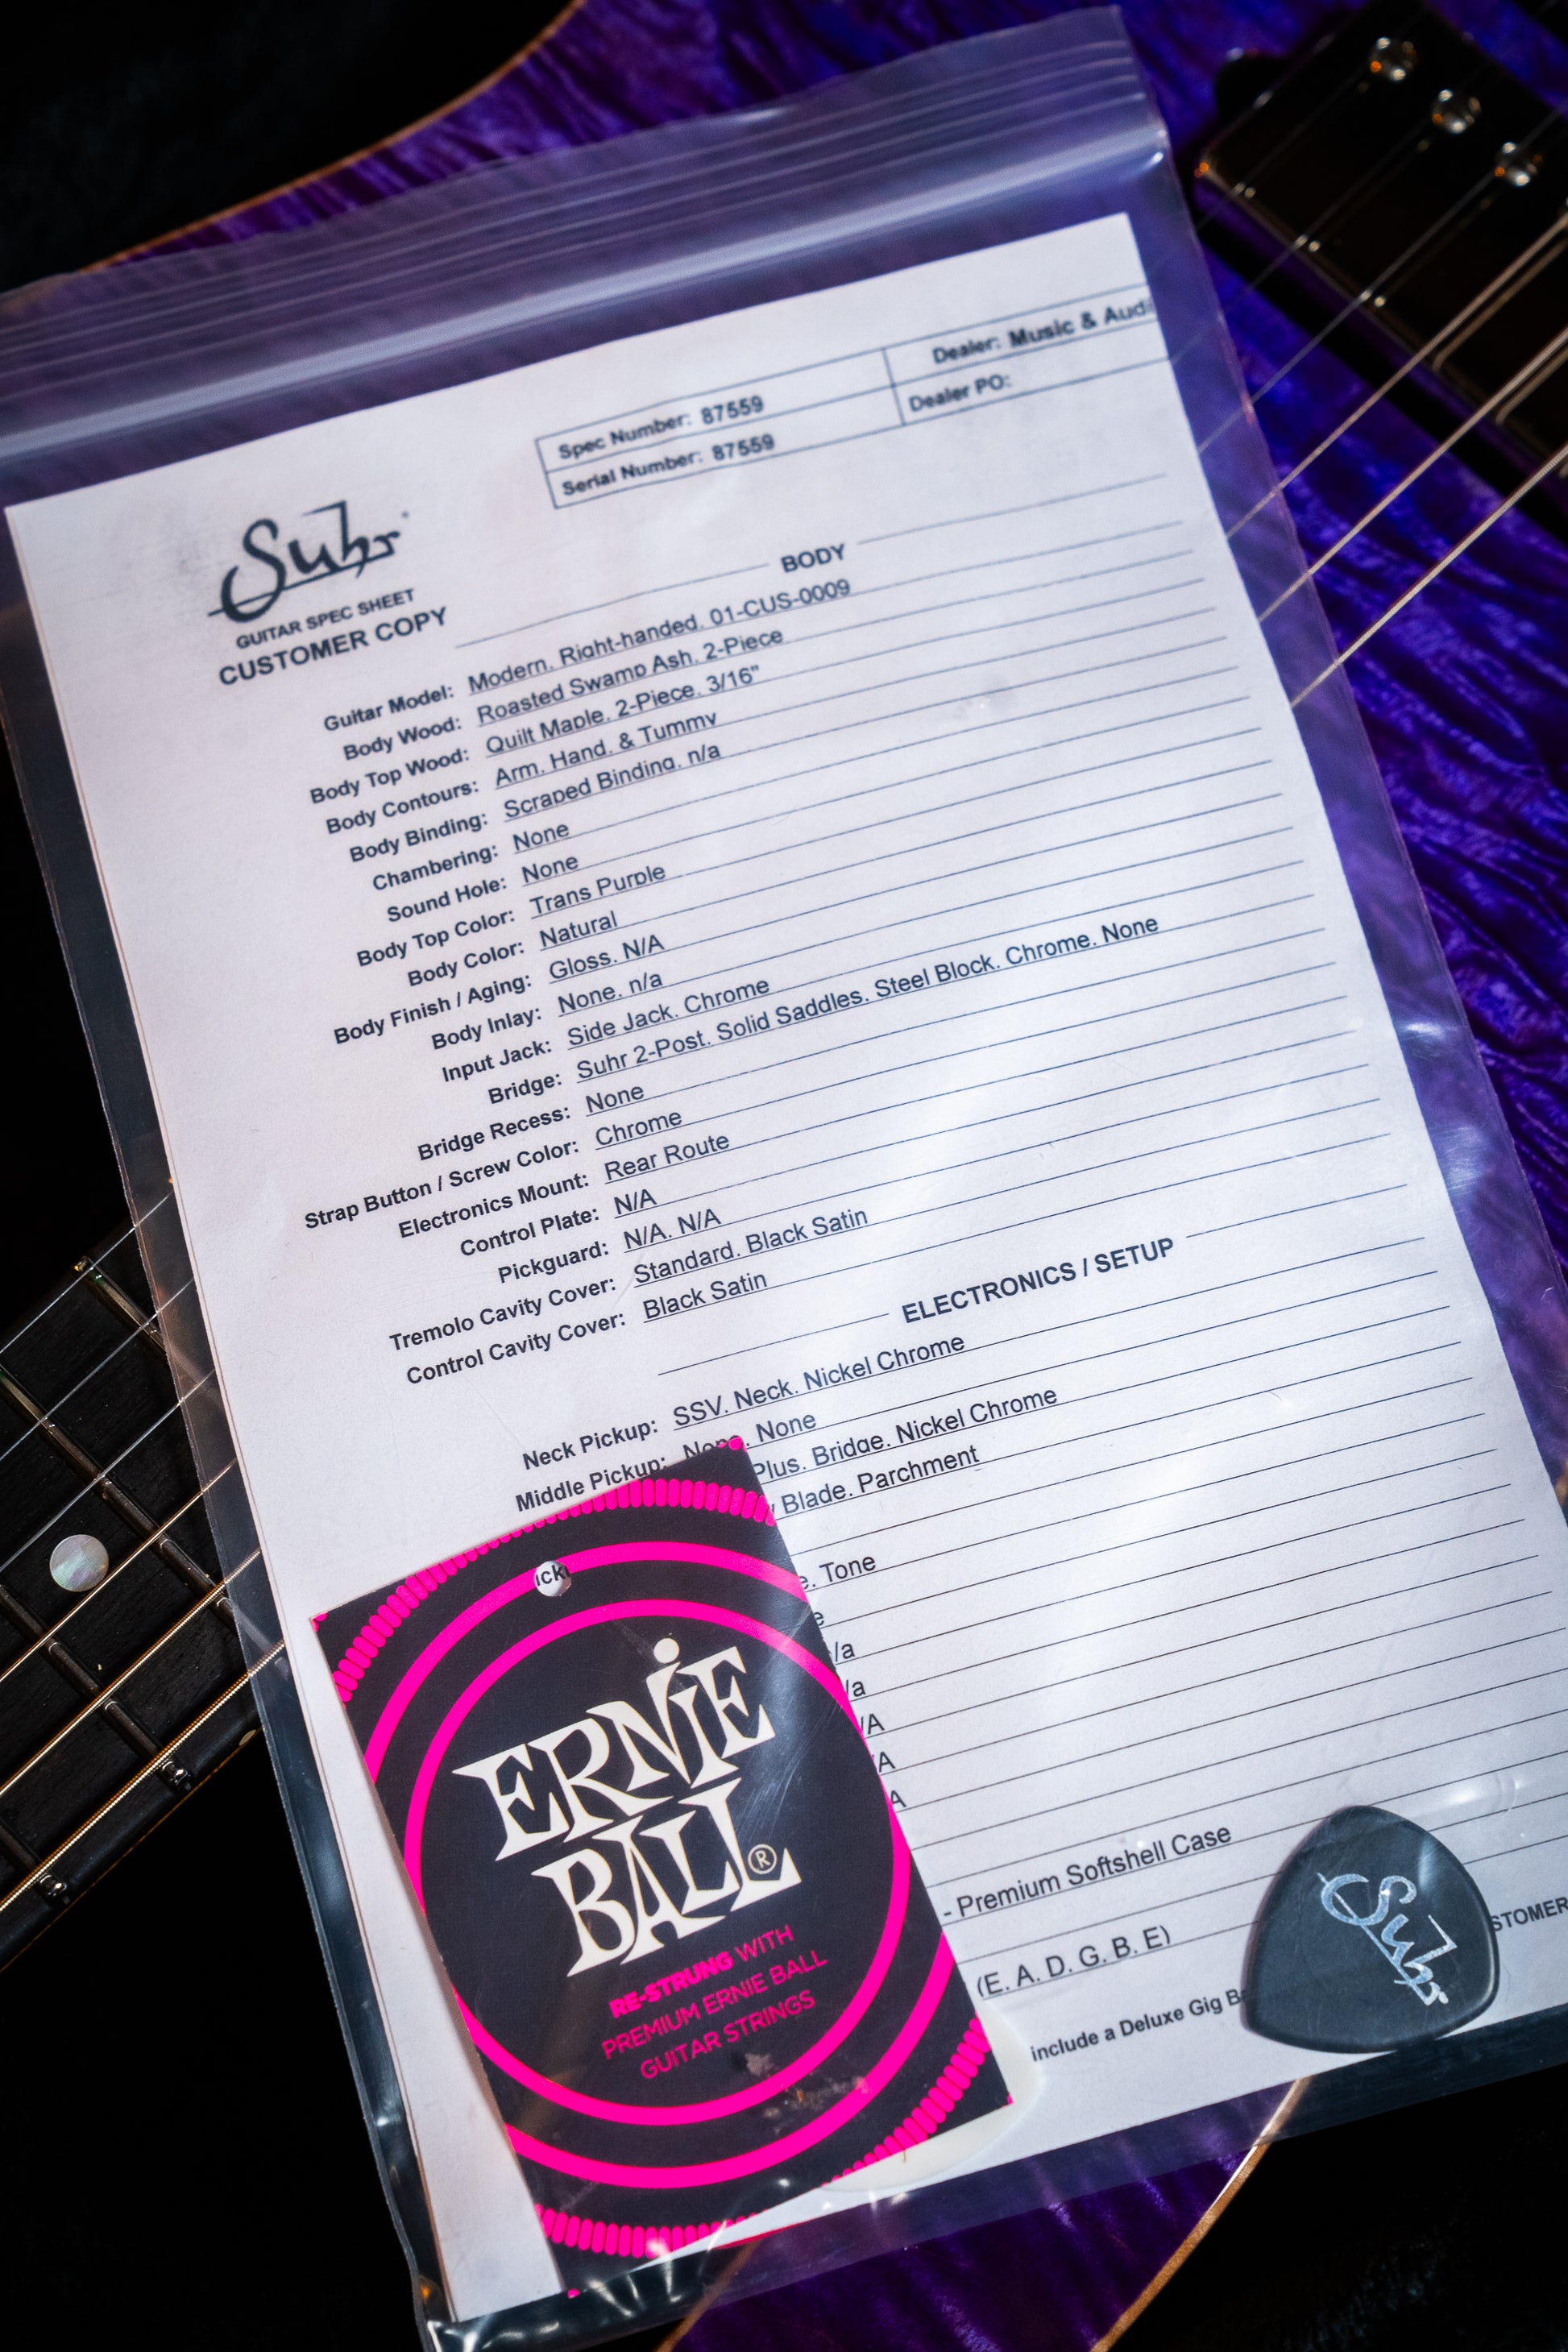 Spec Number: 87559
Dealer: Music & Audi
Serial Number: 87559
Dealer PO:
Suhr
GUITAR SPEC SHEET
CUSTOMER COPY
BODY
Guitar Model: Modern, Right-handed, 01-CUS-0009
Body Wood: Roasted Swamp Ash, 2-Piece
Body Top Wood: Quilt Maple, 2-Piece, 3/16"
Body Contours: Arm, Hand, & Tummy
Body Binding: Scraped Binding, n/a
Chambering: None
Sound Hole: None
Body Top Color: Trans Purple
Body Color: Natural
Body Finish / Aging: Gloss, N/A
Body Inlay: None, n/a
Input Jack: Side Jack, Chrome
Bridge: Suhr 2-Post, Solid Saddles, Steel Block, Chrome, None
Bridge Recess: None
Strap Button / Screw Color: Chrome
Electronics Mount: Rear Route
Control Plate: N/A
Pickguard: N/A, N/A
Tremolo Cavity Cover: Standard, Black Satin
Control Cavity Cover: Black Satin
ELECTRONICS / SETUP
Neck Pickup: SSV, Neck, Nickel Chrome
Middle Pickup: None, None
Plus, Bridge, Nickel Chrome
Blade, Parchment
Tone
/a
/a
/A
/A
A
- Premium Softshell Case
(E, A, D, G, B, E)
include a Deluxe Gig
STOMER
ick
ERNIE
BALL®
RE-STRUNG WITH
PREMIUM ERNIE BALL
GUITAR STRINGS
Suhr